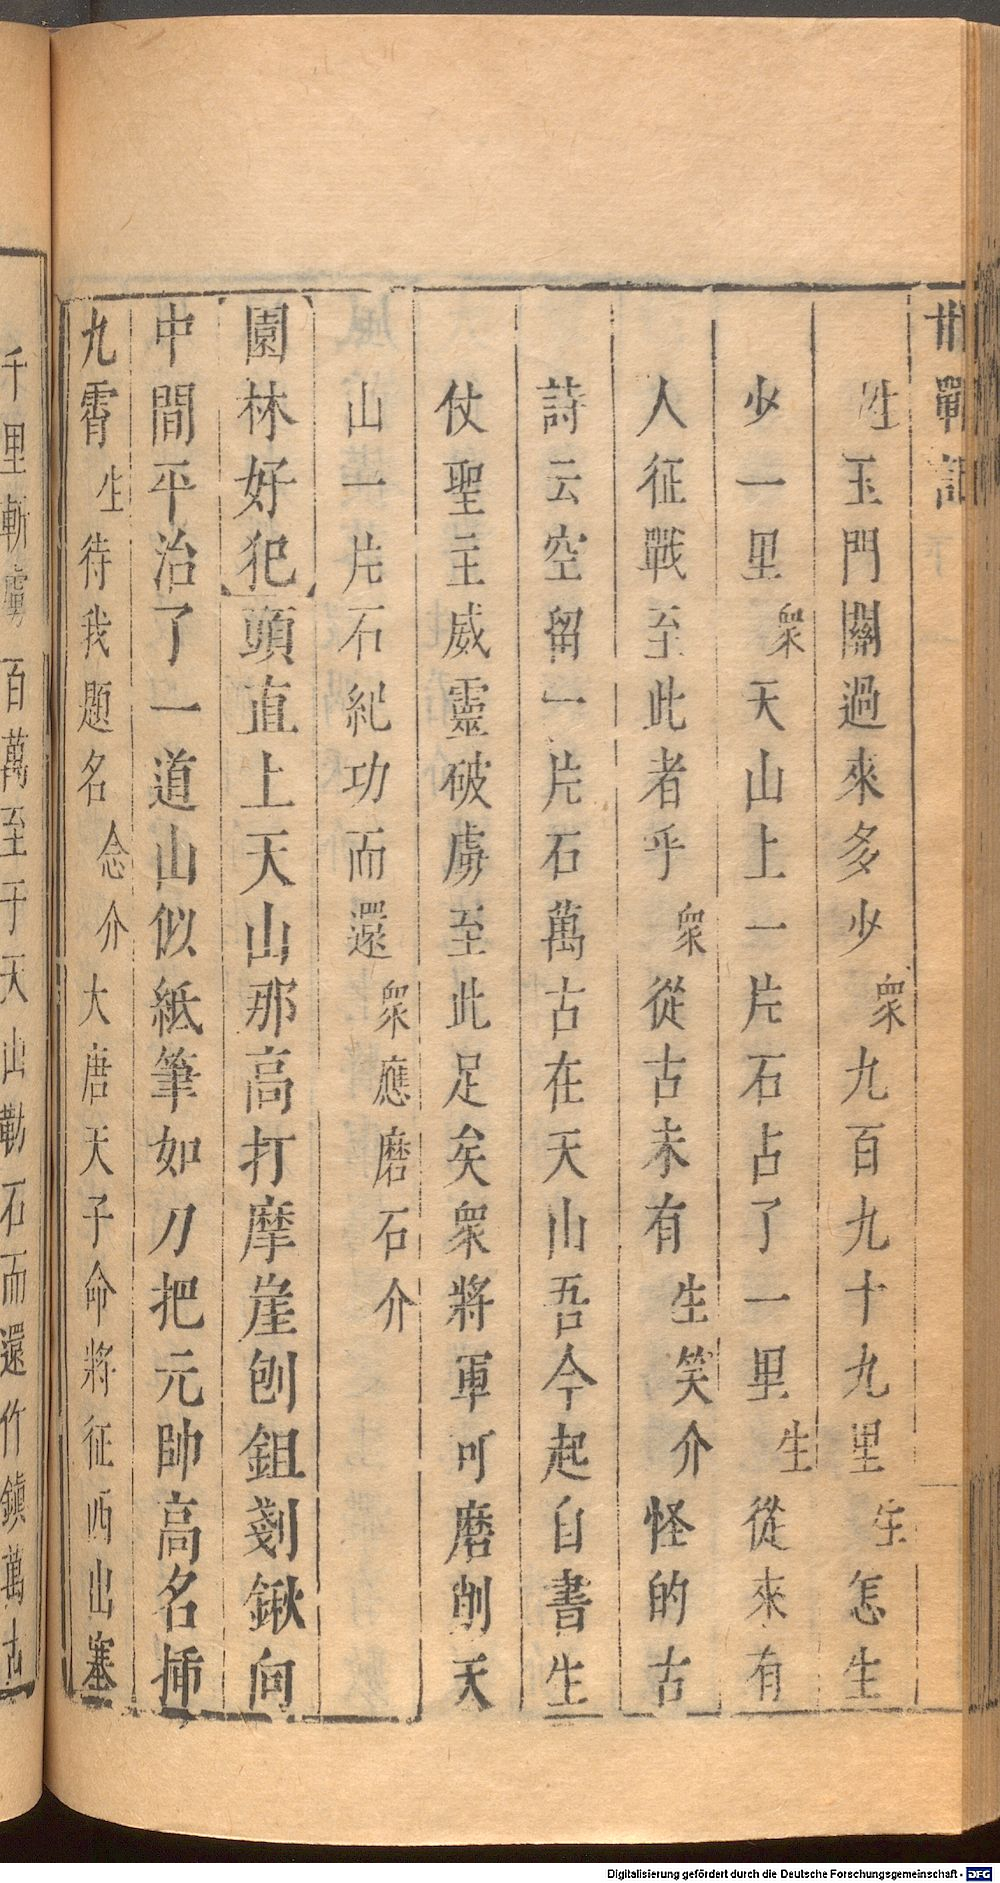 生玉門關過來多少衆九百九十九里生怎生
少一里衆天山上一片石占了一里生從來有
人征戰至此者乎衆從古未有生笑介怪的古
詩云空留一片石萬古在天山吾今起自書生
仗聖主威靈破虜至此足矣衆將軍可磨削天
山一片石紀功而還衆應磨石介
園林好犯頭直上天山那高打摩崖刨鉏剗鍬向
中間平治了一道山似紙筆如刀把元帥高名揷
九霄生待我題名念介大唐天子命將征西出塞
千里斬虜百萬至于天山勒石而還作鎭萬古
Digitalisierung gefördert durch die Deutsche Forschungsgemeinschaft - DFG